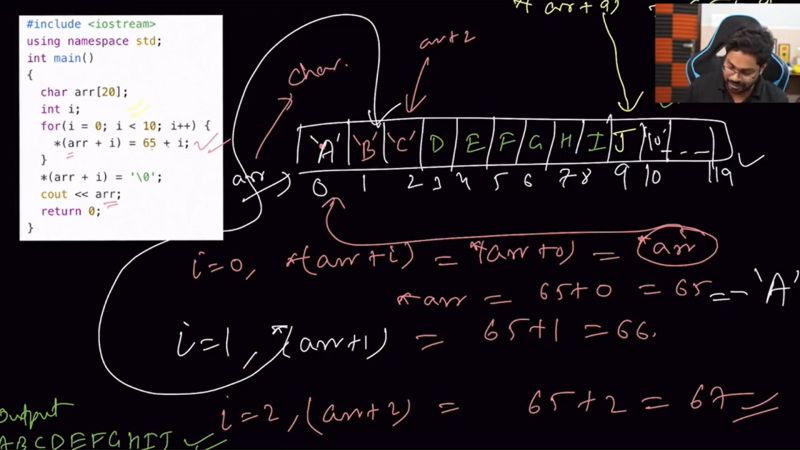 #include <iostream>
using namespace std;
int main()
{
char arr[20];
int i;
for(i = 0; i < 10; i++) {
*(arr + i) = 65 + i;
}
*(arr + i) = '\0';
cout << arr;
return 0;
}
* arr + 9,
arr+2
char.
'A' 'B' 'C' D E F G H I J '\0' - -
arr
0 1 2 3 4 5 6 7 8 9 10 19
i=0, *(arr+i) = *(arr+0) = *arr
*arr = 65+0 = 65 = 'A'
i=1, *(arr+1) = 65+1 = 66.
i=2, (arr+2) = 65+2 = 67
Output
ABCDEFGHIJ